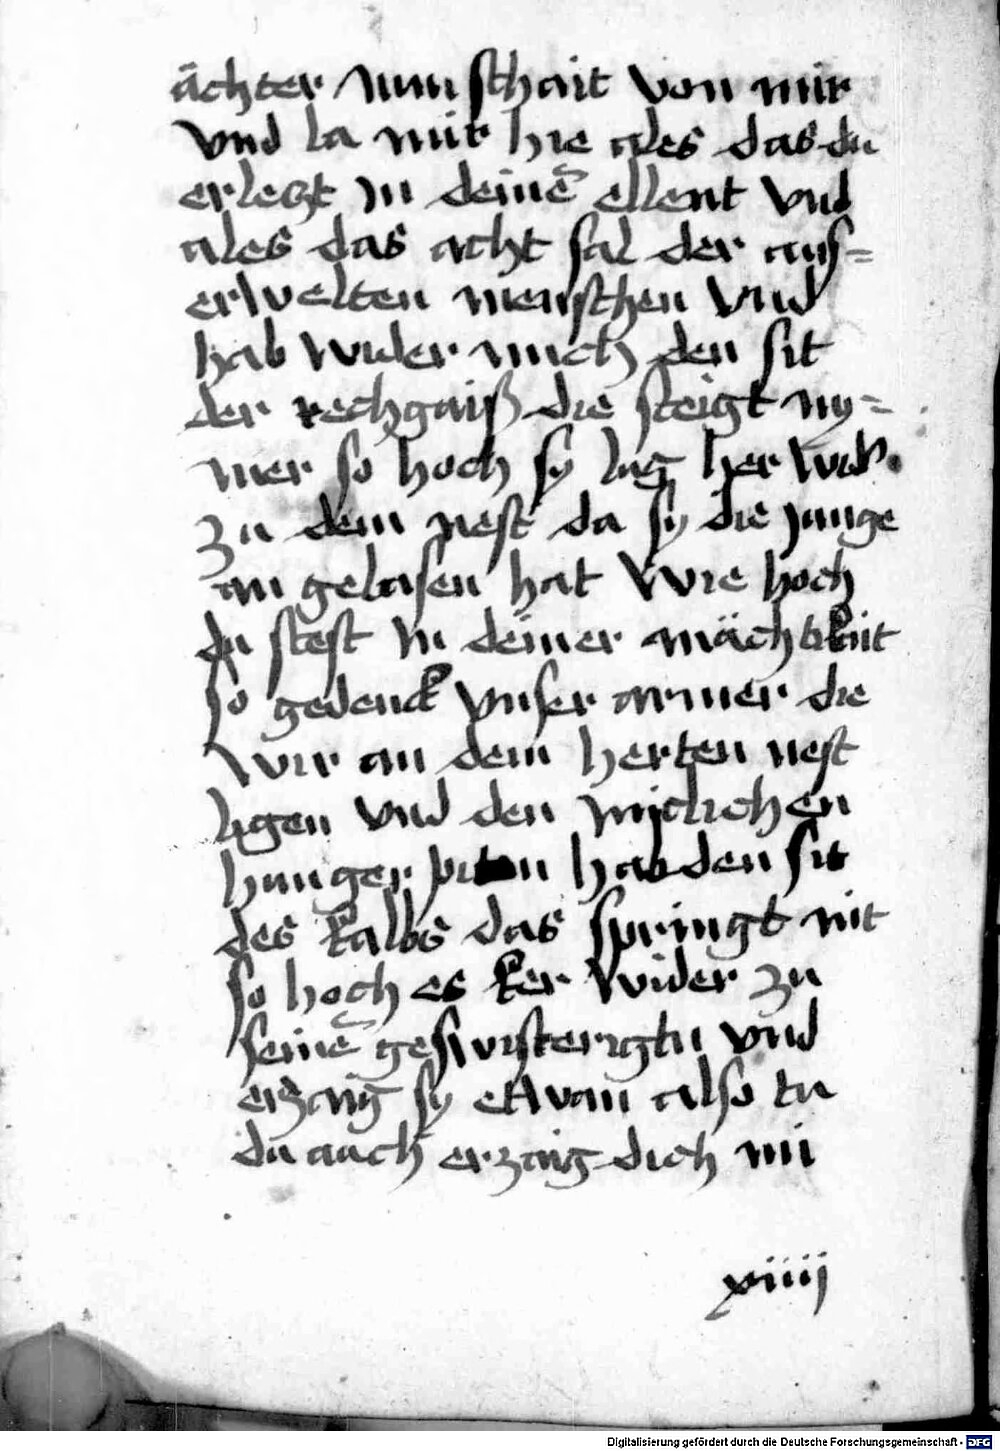 ächter Nun schait von mir
vnd la mir hie ales das du
erlest jn deinē ellent vnd
ales das acht sal der aus=
erwelten menschen vnd
hab wider mich den sit
der rechgaiß die steigt ny=
mer so hoch sy lug her wid'
zu dem nest da sy die junge
an gelasen hat Wie hoch
du stest jn deiner mächtikait
so gedenck vnser armer die
wir an dem herten nest
ligen vnd den
hunger hab den sit
des kalbs das springt nit
so hoch es ker wider zu
seinē geswistergtn vnd
erzaig sy etwan also tu
du auch erzaig dich mi
xiiij
Digitalisierung gefördert durch die Deutsche Forschungsgemeinschaft - DFG